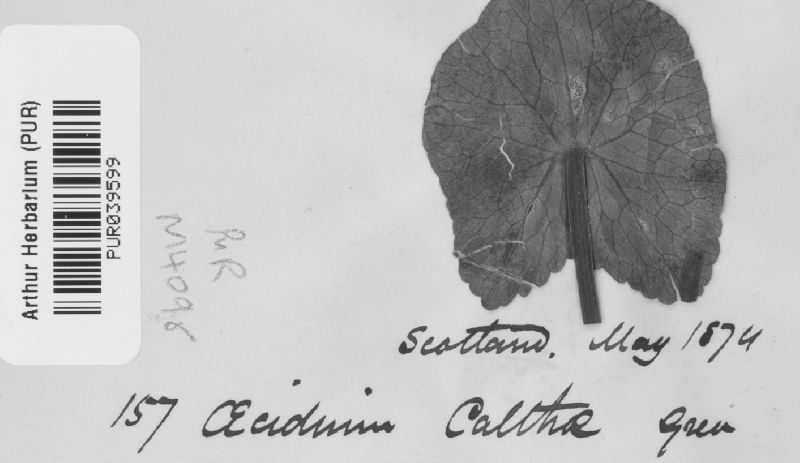 Arthur Herbarium (PUR)
PUR039599
PUR
Scotland, May 1874
157 Œcidium Calthæ Grev